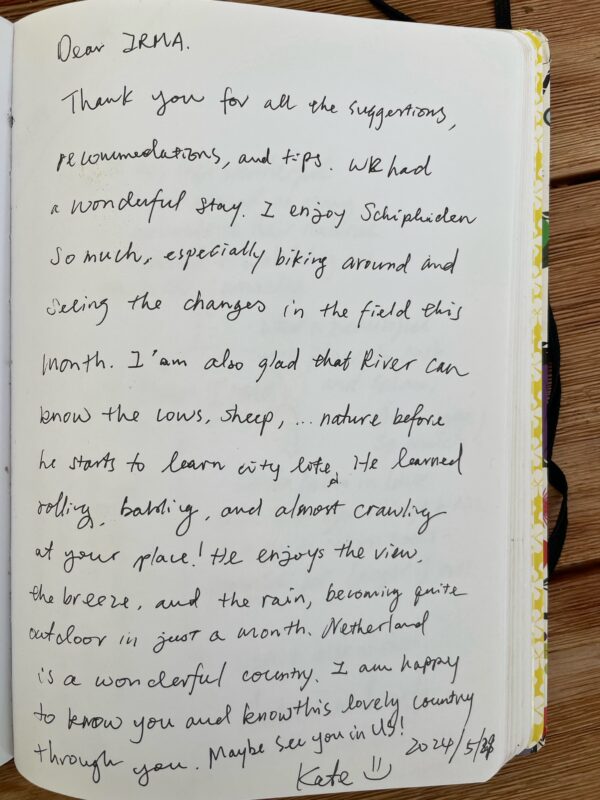 Dear IRMA.
Thank you for all the suggestions,
recommedations, and tips. We had
a wonderful stay. I enjoy Schiphiden
so much, especially biking around and
seeing the changes in the field this
month. I'am also glad that River can
know the cows, sheep, ... nature before
he starts to learn city life. He learned
rolling, babling, and almost crawling
at your place! He enjoys the view,
the breeze, and the rain, becoming quite
outdoor in just a month. Netherland
is a wonderful country. I am happy
to know you and know this lovely country
through you. Maybe see you in US!
2024/5/
Kate